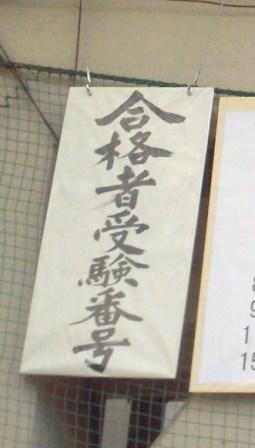 合格者受験番号
8
9
1
15